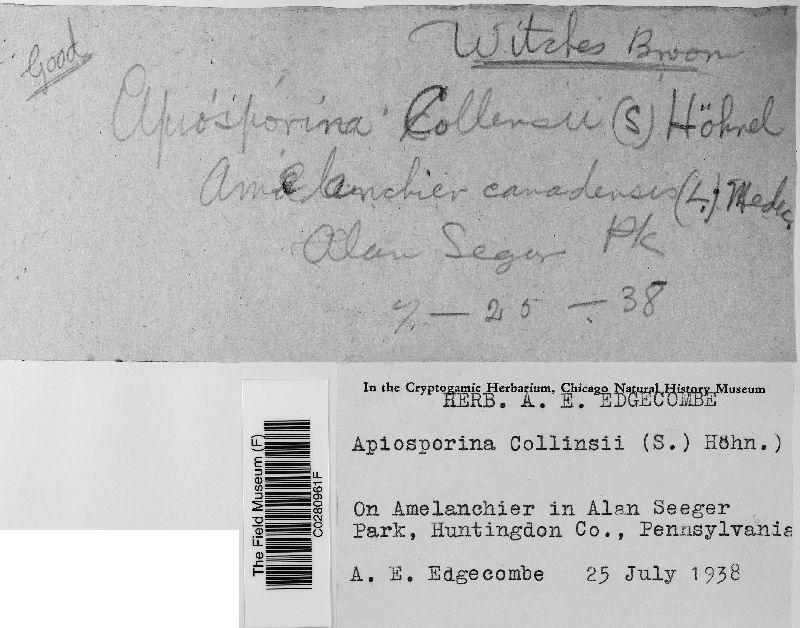 Good
Witches Broom
Apiosporina Collensii (S) Höhnel
Amelanchier canadensis (L.) Medic.
Alan Seger Pk
7 — 25 — 38
In the Cryptogamic Herbarium, Chicago Natural History Museum
HERB. A. E. EDGECOMBE
Apiosporina Collinsii (S.) Höhn.)
On Amelanchier in Alan Seeger
Park, Huntingdon Co., Pennsylvania
A. E. Edgecombe 25 July 1938
The Field Museum (F)
C0280961F